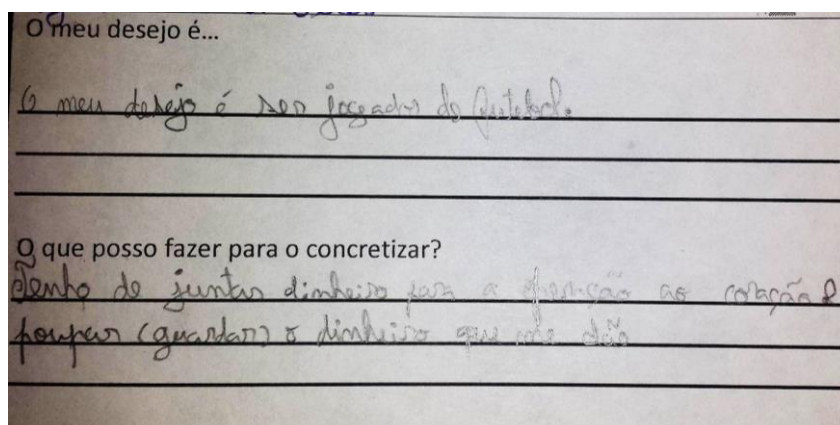 O meu desejo é...
O meu desejo é ser jogador de futebol.
O que posso fazer para o concretizar?
Tenho de juntar dinheiro para a operação ao coração e
poupar (guardar) o dinheiro que me dão